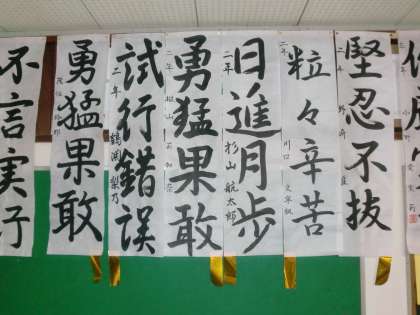 堅忍不抜
二年
粒々辛苦
二年 川口
日進月歩
二年 杉山 航太郎
勇猛果敢
二年
試行錯誤
二年 梨乃
勇猛果敢
不言実行